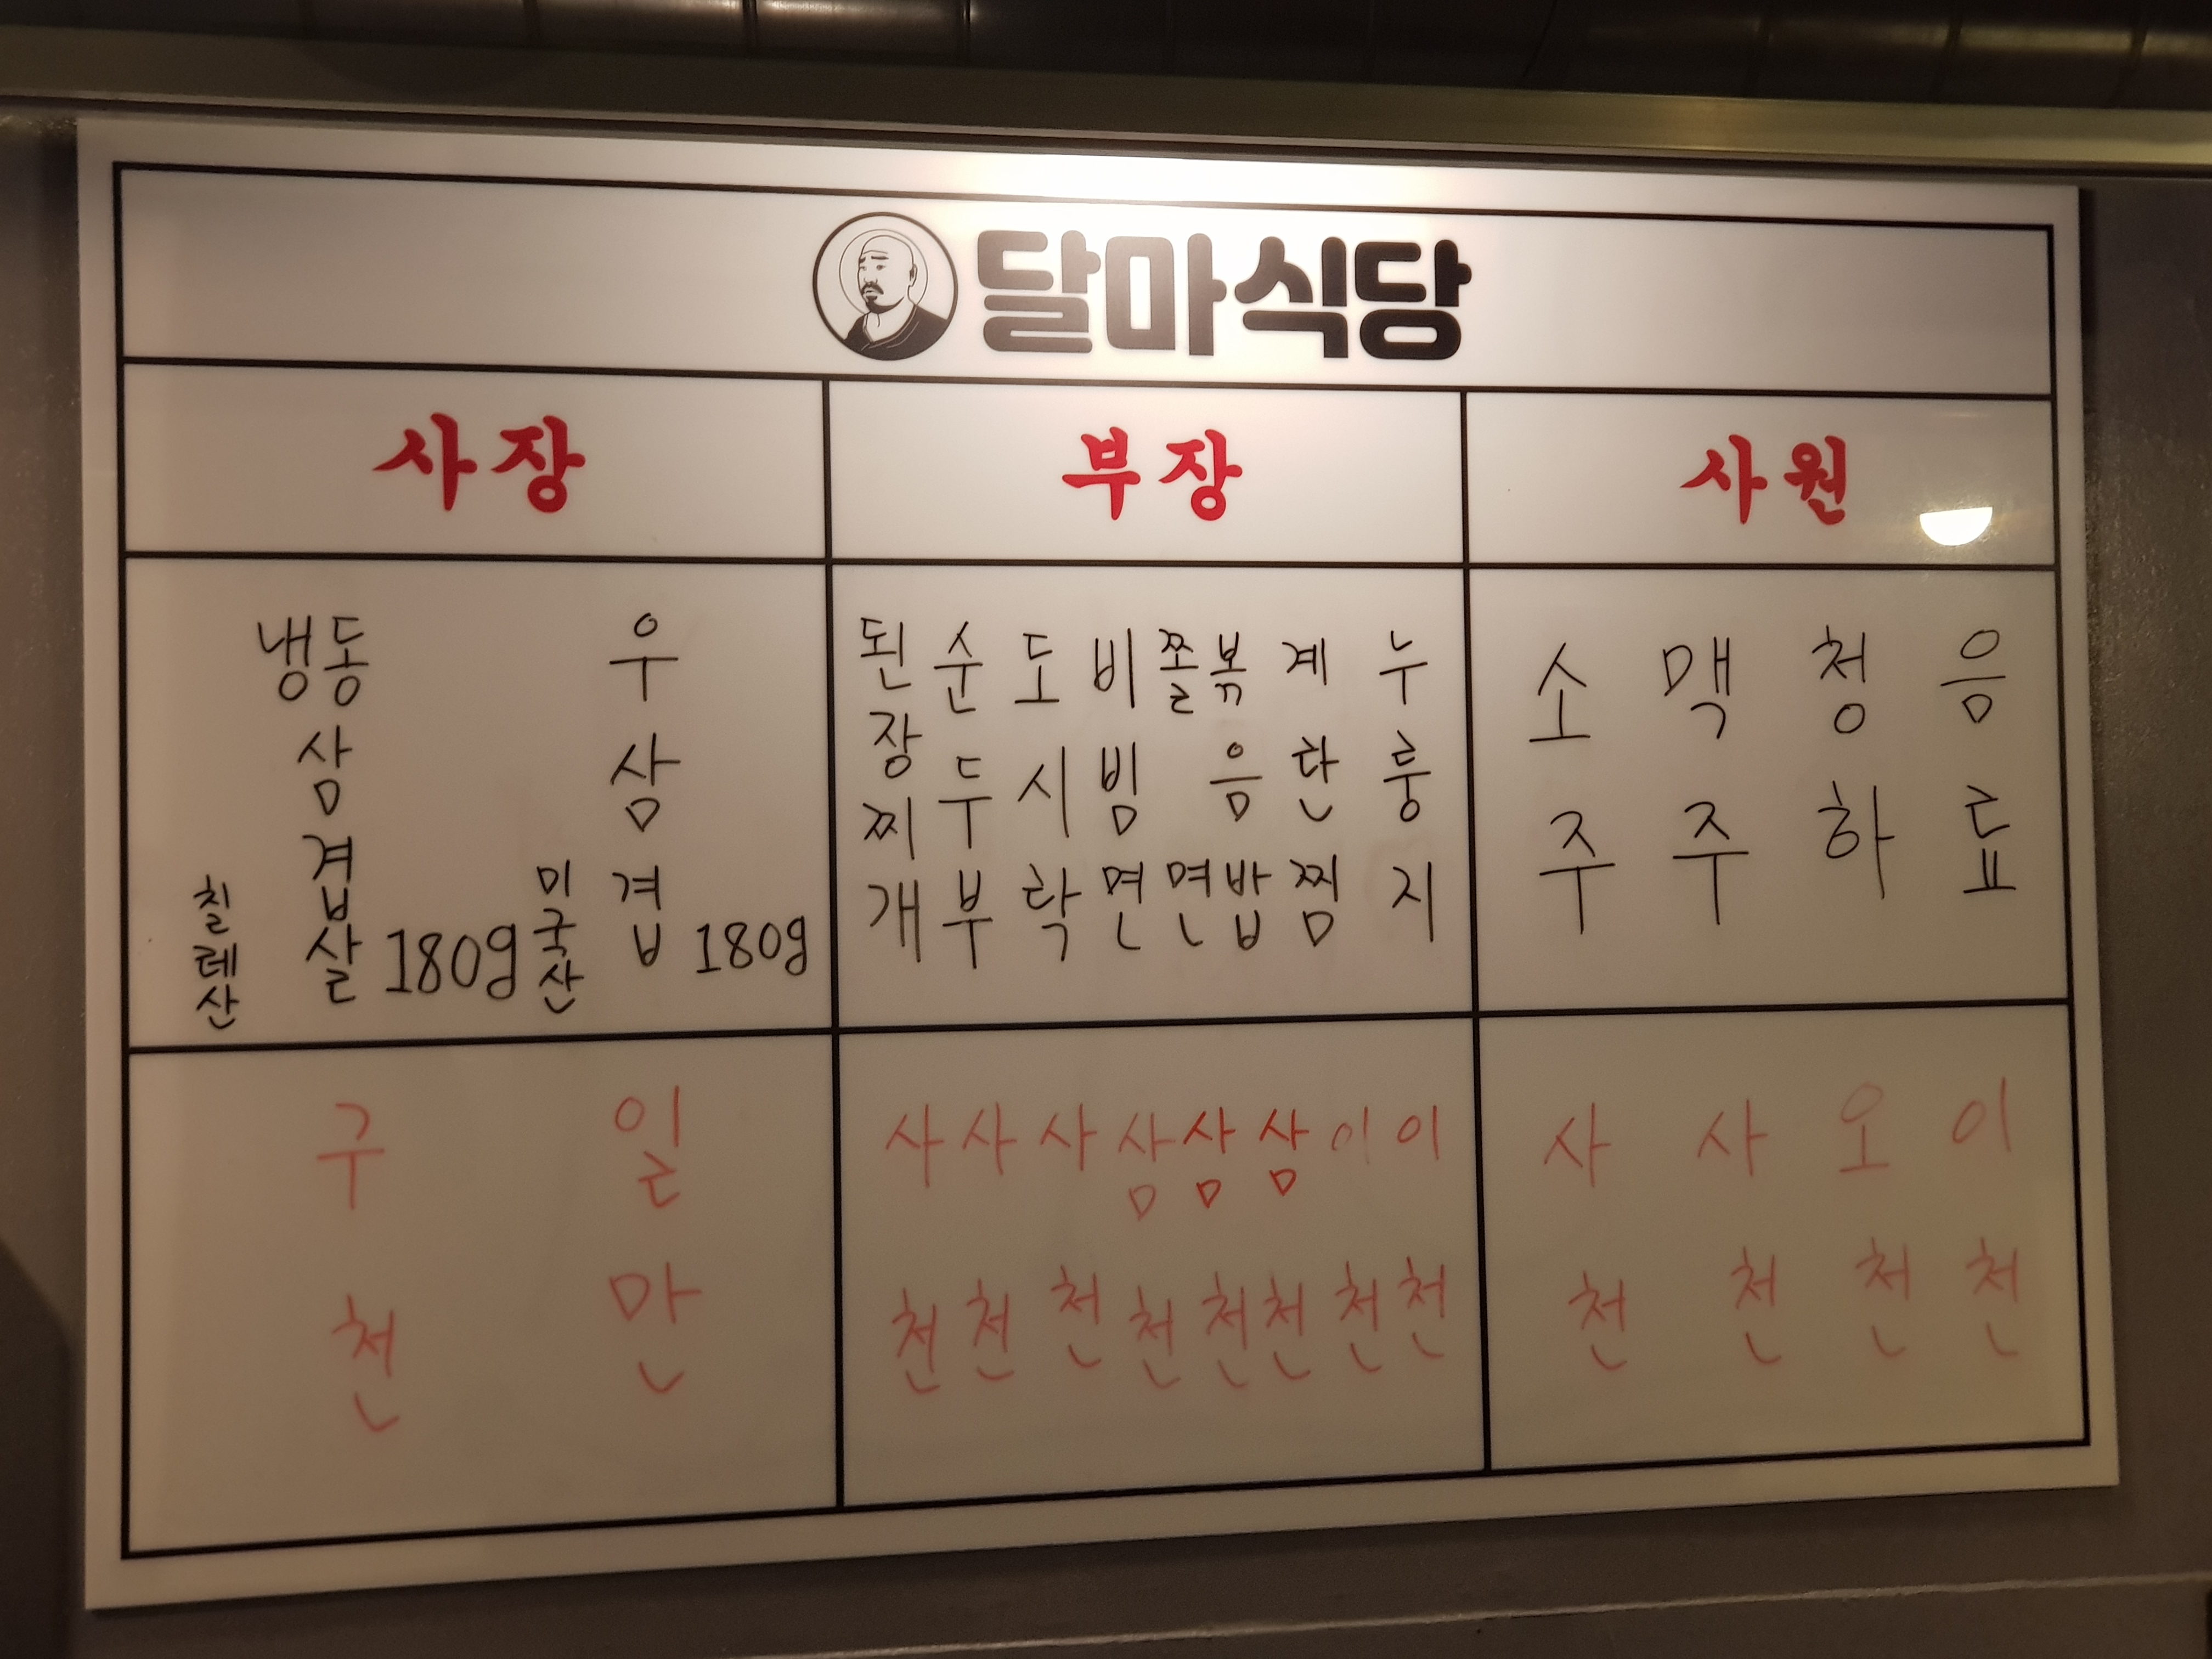 달마식당
사장
부장
사원
냉동삼겹살
칠레산
180g
우삼겹
미국산
180g
된장찌개
순두부
도시락
비빔면
쫄면
볶음밥
계란찜
누룽지
소주
맥주
청하
음료
구천
일만
사천
사천
사천
삼천
삼천
삼천
이천
이천
사천
사천
오천
이천